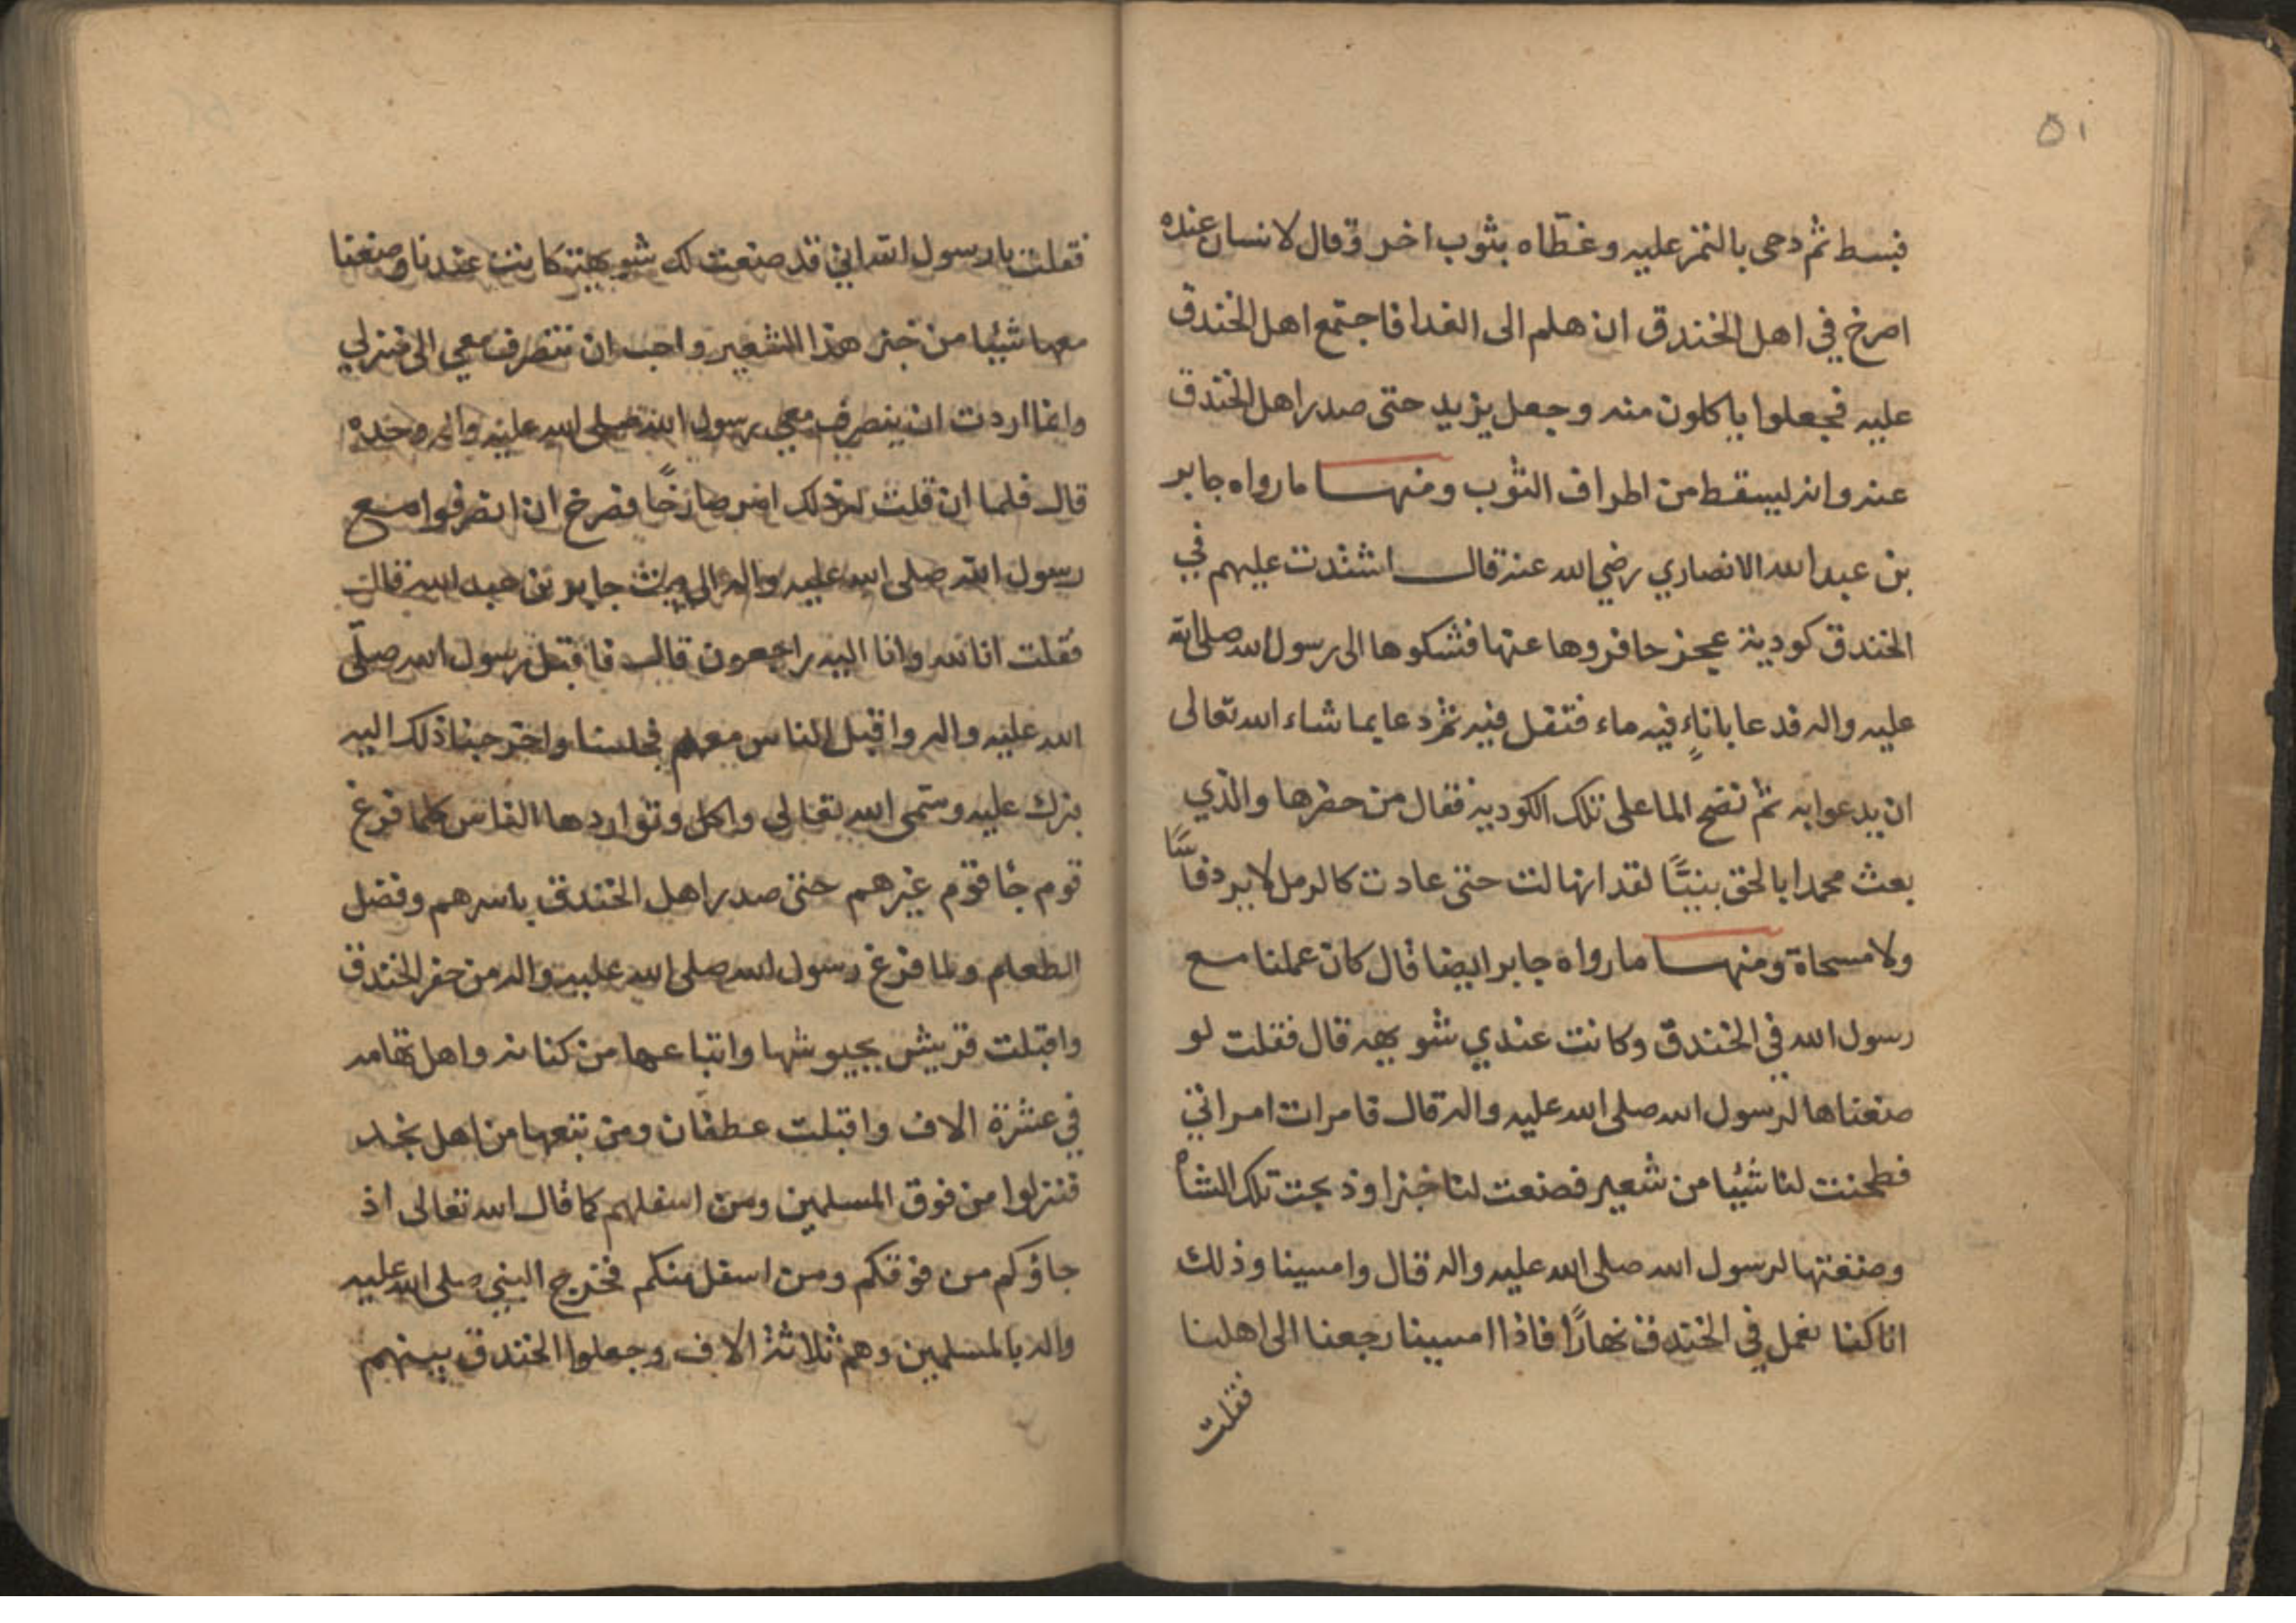 ٥١
فبسط ثم دحى بالتمر عليه وغطّاه بثوب اخر وقال لانسان عنده
اصرخ في اهل الخندق ان هلم الى الغدا فاجتمع اهل الخندق
عليه فجعلوا ياكلون منه وجعل يزيد حتى صدر اهل الخندق
عنه وانه ليسقط من اطراف الثوب ومنها ما رواه جابر
بن عبد الله الانصاري رضي الله عنه قال اشتدت عليهم في
الخندق كودية عجز حافروها عنها فشكوها الى رسول الله صلى الله
عليه واله فدعا باناءٍ فيه ماء فتفل فيه ثم دعا بما شاء الله تعالى
ان يدعوا به ثم نضح الما على تلك الكودية فقال من حضرها والذي
بعث محمدا بالحق نبيًّا لقد انهالت حتى عادت كالرمل لا يرد فأسًا
ولا مسحاة ومنها ما رواه جابر ايضا قال كان عملنا مع
رسول الله في الخندق وكانت عندي شويهه قال فقلت لو
صنعناها لرسول الله صلى الله عليه واله قال فامرات امراتي
فطحنت لنا شيئا من شعير فصنعت لنا خبزا وذبحت تلك الشاة
وصنعتها لرسول الله صلى الله عليه واله قال وامسينا وذلك
انا كنا نعمل في الخندق نهارًا فاذا امسينا رجعنا الى اهلنا
فقلت
فقلت يا رسول الله اني قد صنعت لك شويهة كانت عندنا وصنعنا
معها شيئا من خبز هذا الشعير واحب ان تنصرف معي الى منزلي
وانما اردت ان ينصرف معي رسول الله صلى الله عليه واله وحده
قال فلما ان قلت له ذلك امر صارخًا فصرخ ان انصرفوا مع
رسول الله صلى الله عليه واله الى بيت جابر بن عبد الله قال
فقلت انا لله وانا اليه راجعون قال فاقبل رسول الله صلّى
الله عليه واله واقبل الناس معهم فجلسنا واخرجنا ذلك اليه
برك عليه وسمى الله تعالى واكل وتواردها الناس كلما فرغ
قوم جا قوم غيرهم حتى صدر اهل الخندق باسرهم وفضل
الطعام ولما فرغ رسول الله صلى الله عليه واله من حفر الخندق
واقبلت قريش بجيوشها واتباعها من كنانه واهل تهامه
في عشرة الاف واقبلت عطفان ومن تبعها من اهل نجد
فنزلوا من فوق المسلمين ومن اسفلهم كما قال الله تعالى اذ
جاؤكم من فوقكم ومن اسفل منكم فخرج النبي صلى الله عليه
واله بالمسلمين وهم ثلاثة الاف وجعلوا الخندق بينهم